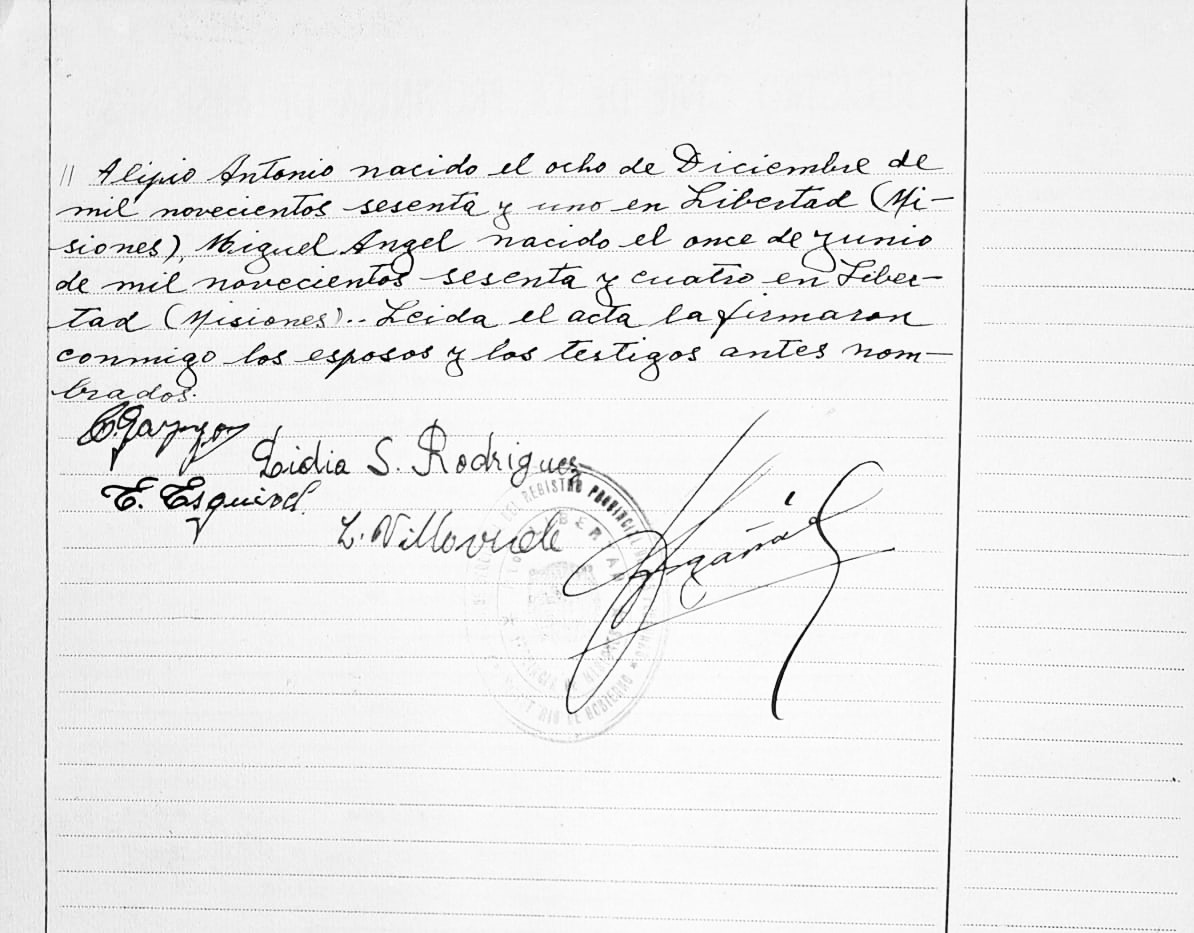 // Alipio Antonio nacido el ocho de Diciembre de
mil novecientos sesenta y uno en Libertad (Mi-
siones), Miguel Angel nacido el once de Junio
de mil novecientos sesenta y cuatro en Liber-
tad (Misiones).. Leida el acta la firmaron
conmigo los esposos y los testigos antes nom-
brados.
Lidia S. Rodriguez
E. Esquivel
L. Villaverde
DEL REGISTRO PROVINCIAL
LIBERTAD
PROVINCIA DE MISIONES
MINISTERIO DE GOBIERNO